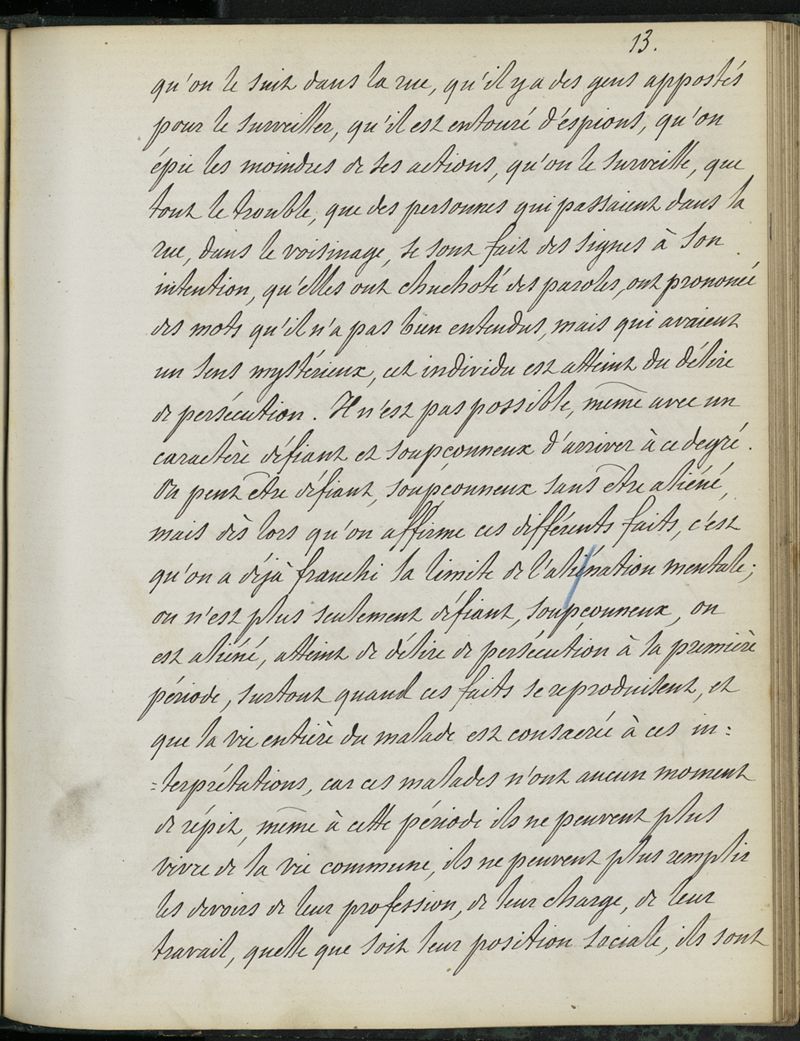 13.
qu'on le suit dans la rue, qu'il y a des gens appostés
pour le surveiller, qu'il est entouré d'éspions, qu'on
épie les moindres de ses actions, qu'on le surveille, que
tout le trouble, que des personnes qui passaient dans la
rue, dans le voisinage, se sont fait des signes à son
intention, qu'elles ont chuchoté des paroles, ont prononcé
des mots qu'il n'a pas bien entendus, mais qui avaient
un sens mystérieux, cet individu est atteint du délire
de persécution. Il n'est pas possible, même avec un
caractère défiant et soupçonneux d'arriver à ce degré.
On peut être défiant, soupçonneux sans être aliéné,
mais dès lors qu'on affirme ces différents faits, c'est
qu'on a déjà franchi la limite de l'aliénation mentale;
on n'est plus seulement défiant, soupçonneux, on
est aliéné, atteint de délire de persécution à la première
période, surtout quand ces faits se reproduisent, et
que la vie entière du malade est consacrée à ces in=
=terprétations, car ces malades n'ont aucun moment
de répit, même à cette période ils ne peuvent plus
vivre de la vie commune, ils ne peuvent plus remplir
les devoirs de leur profession, de leur charge, de leur
travail, quelle que soit leur position sociale, ils sont